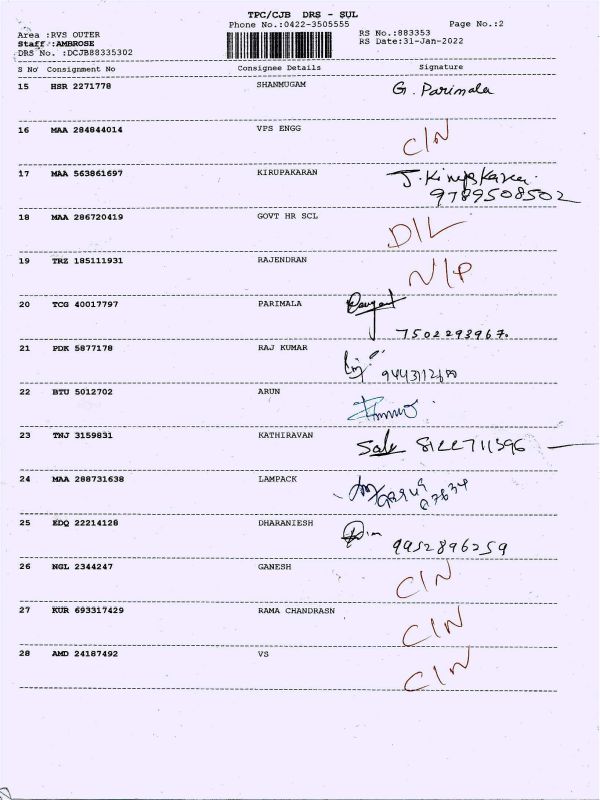 TPC/CJB DRS - SUL
Phone No.:0422-3505555 Page No.:2
Area :RVS OUTER RS No.:883353
Staff :AMBROSE RS Date:31-Jan-2022
DRS No. :DCJB88335302
S No Consignment No Consignee Details Signature
15 HSR 2271778 SHANMUGAM G. Parimala
16 MAA 284844014 VPS ENGG C/N
17 MAA 563861697 KIRUPAKARAN J. Kirupakaran
9789508502
18 MAA 286720419 GOVT HR SCL D/L
19 TRZ 185111931 RAJENDRAN N/P
20 TCG 40017797 PARIMALA
7502293967.
21 PDK 5877178 RAJ KUMAR
22 BTU 5012702 ARUN
23 TNJ 3159831 KATHIRAVAN 8122711396
24 MAA 288731638 LAMPACK
25 EDQ 22214128 DHARANIESH
9952896259
26 NGL 2344247 GANESH C/N
27 KUR 693317429 RAMA CHANDRASN C/N
28 AMD 24187492 VS C/N